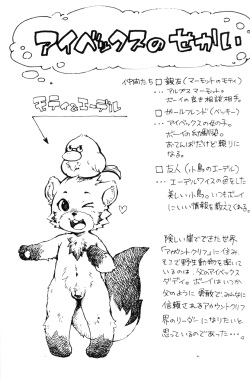 アイベックスのせかい
モティ&エーデル
仲間たち□親友(マーモットのモティ)
…アルプスマーモット。
ボーイの良き相談相手。
□ガールフレンド(ベッキー)
…アイベックスの女の子。
ボーイの幼馴染。
おてんばだけど頼りに
なる。
□友人(小鳥のエーデル)
…エーデルワイスの花をした
美しい小鳥。いつもボーイ
にいい情報を教えてくれる。
険しい崖でできた世界
「アカウントクリフ」に住み、
そこで野生動物を率いて
いるのは、父のアイベックス
ダディ。ボーイはいつか
父のように勇敢で、みんなに
信頼されるアカウントクリフ
界のリーダーになりたいと
思っているのであった…。